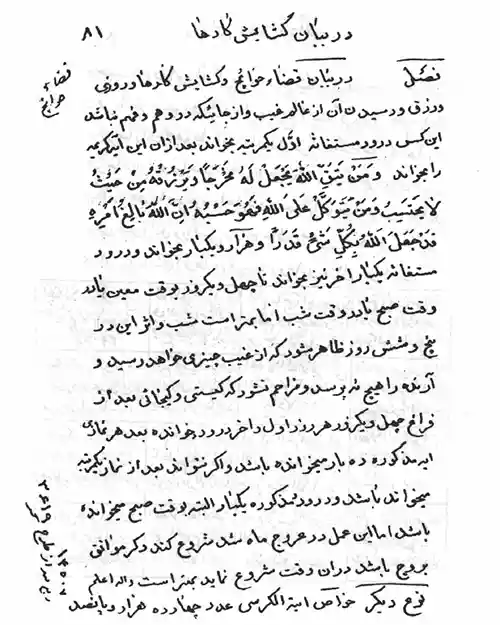 در بیان کشایش کارها ۸۱
قضاء
حوائج
فصل در بیان قضاء حوائج و کشایش کارها و روزی
و رزق و رسیدن آن از عالم غیب و از جائیکه در وهم و فهم نباشد
این کس درود مستغاثه اول یکمرتبه بخواند بعد ازان این آیه کریمه
را بخواند وَمَنْ يَتَّقِ اللّٰهَ يَجْعَلْ لَهُ مَخْرَجًا وَيَرْزُقْهُ مِنْ حَيْثُ
لَا يَحْتَسِبُ وَمَنْ يَتَوَكَّلْ عَلَى اللّٰهِ فَهُوَ حَسْبُهُ اِنَّ اللّٰهَ بَالِغُ اَمْرِهِ
قَدْ جَعَلَ اللّٰهُ لِكُلِّ شَيْءٍ قَدْرًا و هزار و یکبار بخواند و درود
مستغاثه یکبار اخر نیز بخواند تا چهل و یکروز بوقت معین باید
وقت صبح باید وقت شب اما بهتر است شب و اثر این در
پنج و شش روز ظاهر میشود که از غیب چیزی خواهد رسید و
آرنده را هیچ نه پرسد و مزاحم نشود که کیستی و کجائی بعد از
فراغ چهل و یکروز هر روز اول و اخر درود بخوانده بعد هر نمازی
ایه مذکوره ده بار میخوانده باشد و اکر نتواند بعد از نماز یکمرتبه
میخوانده باشد و درود مذکوره یکبار البته بوقت صبح میخوانده
باشد اما این عمل در عروج ماه سند شروع کند و کر موافق
بروج باشد دران وقت شروع نماید بهتر است والله اعلم
نوع دیکر خواص ایة الکرسی عدد چهارده هزار و پانصد